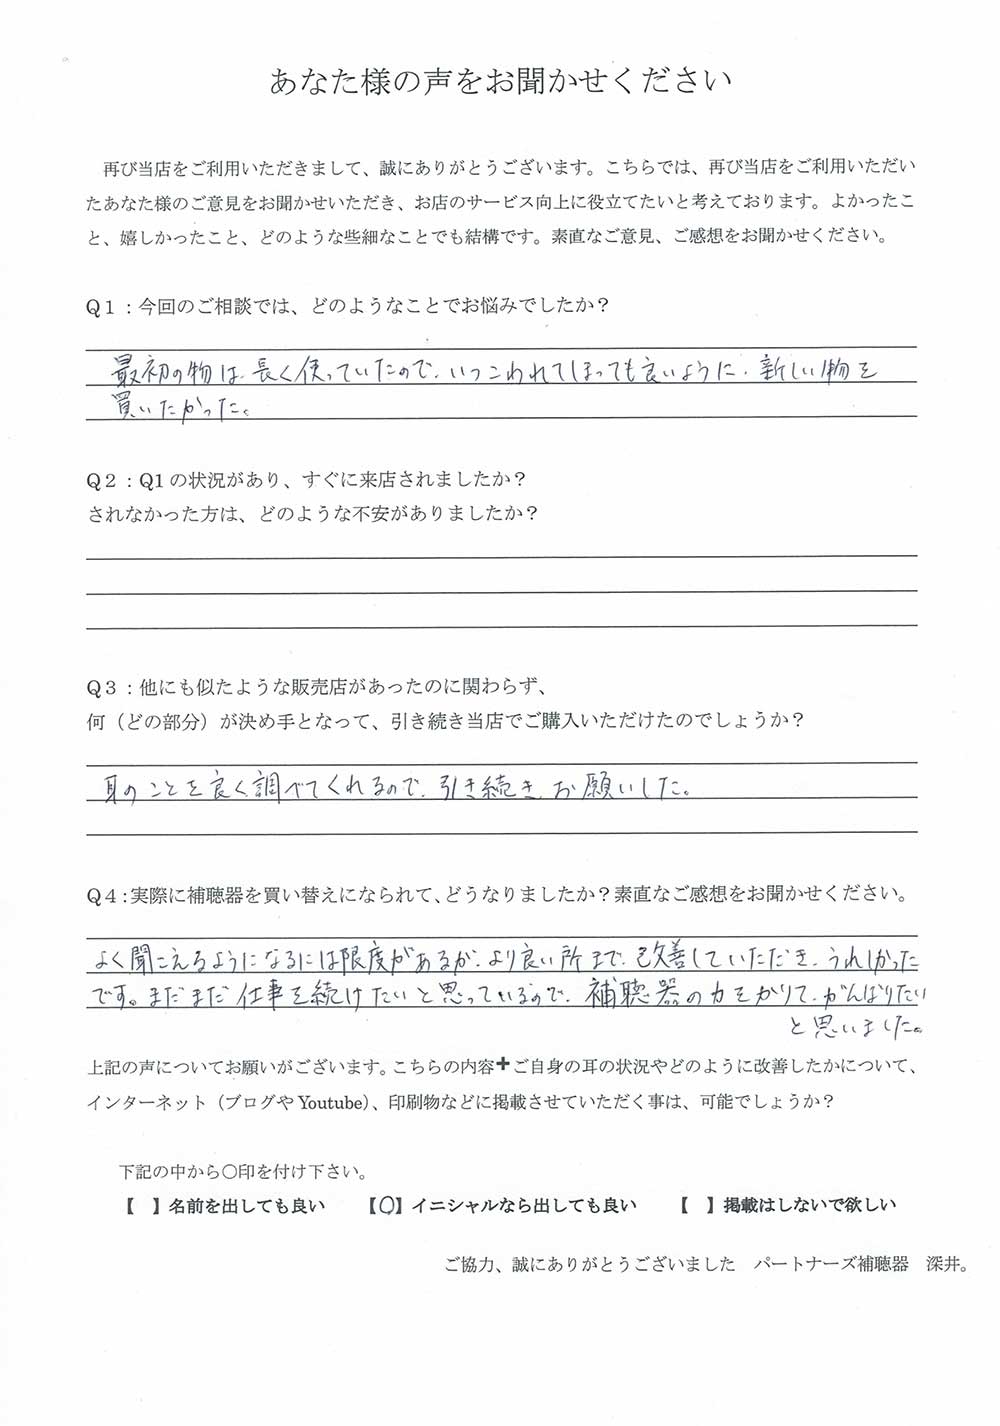 あなた様の声をお聞かせください
再び当店をご利用いただきまして、誠にありがとうございます。こちらでは、再び当店をご利用いただい
たあなた様のご意見をお聞かせいただき、お店のサービス向上に役立てたいと考えております。よかったこ
と、嬉しかったこと、どのような些細なことでも結構です。素直なご意見、ご感想をお聞かせください。
Q1：今回のご相談では、どのようなことでお悩みでしたか？
最初の物は、長く使っていたので、いつこわれてしまっても良いように、新しい物を
買いたかった。
Q2：Q1の状況があり、すぐに来店されましたか？
されなかった方は、どのような不安がありましたか？
Q3：他にも似たような販売店があったのに関わらず、
何（どの部分）が決め手となって、引き続き当店でご購入いただけたのでしょうか？
耳のことを良く調べてくれるので、引き続き、お願いした。
Q4：実際に補聴器を買い替えになられて、どうなりましたか？素直なご感想をお聞かせください。
よく聞こえるようになるには限度があるが、より良い所まで、改善していただき、うれしかった
です。まだまだ仕事を続けたいと思っているので、補聴器の力をかりて、がんばりたい
と思いました。
上記の声についてお願いがございます。こちらの内容➕ご自身の耳の状況やどのように改善したかについて、
インターネット（ブログやYoutube）、印刷物などに掲載させていただく事は、可能でしょうか？
下記の中から〇印を付け下さい。
【　】名前を出しても良い　【〇】イニシャルなら出しても良い　【　】掲載はしないで欲しい
ご協力、誠にありがとうございました　パートナーズ補聴器　深井。